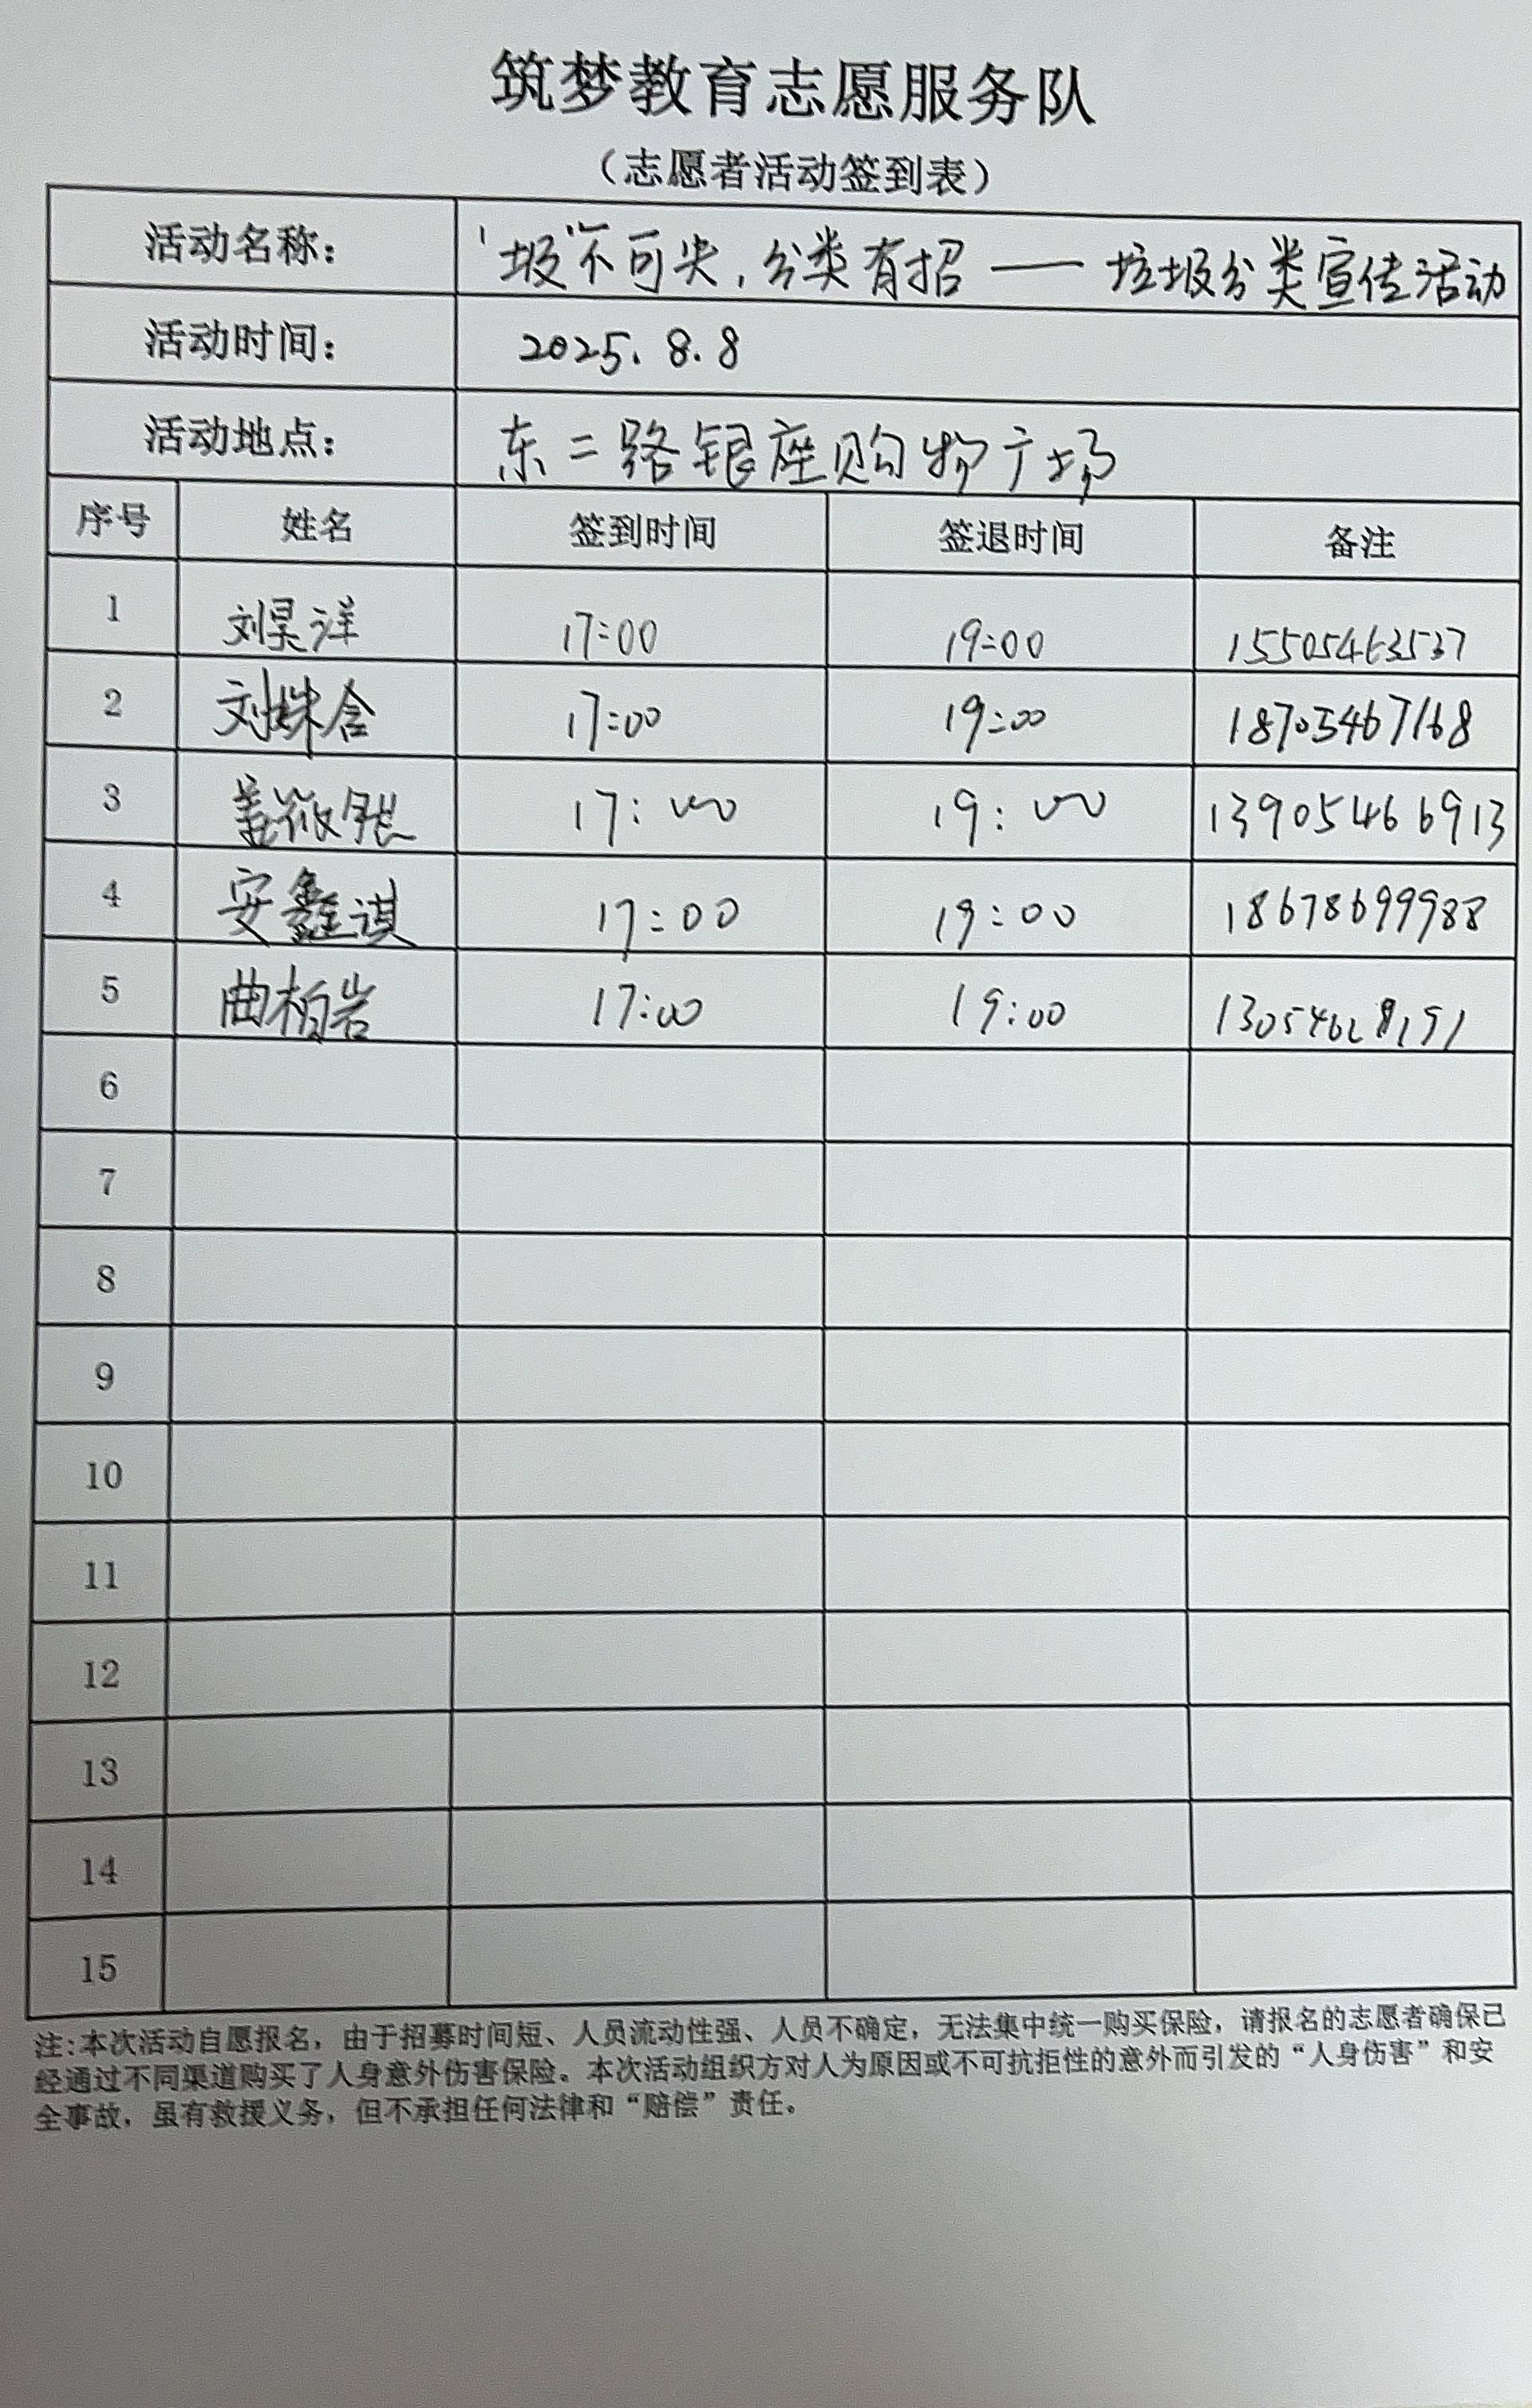 筑梦教育志愿服务队
（志愿者活动签到表）
活动名称： “圾”不可失，分类有招——垃圾分类宣传活动
活动时间： 2025.8.8
活动地点： 东二路银座购物广场
序号 姓名 签到时间 签退时间 备注
1 刘昊洋 17:00 19:00 15505463537
2 刘姝含 17:00 19:00 18705467168
3 盖 17:00 19:00 13905466913
4 安鑫淇 17:00 19:00 18678699988
5 曲柏岩 17:00 19:00
6
7
8
9
10
11
12
13
14
15
注：本次活动自愿报名，由于招募时间短、人员流动性强、人员不确定，无法集中统一购买保险，请报名的志愿者确保已
经通过不同渠道购买了人身意外伤害保险。本次活动组织方对人为原因或不可抗拒性的意外而引发的“人身伤害”和安
全事故，虽有救援义务，但不承担任何法律和“赔偿”责任。